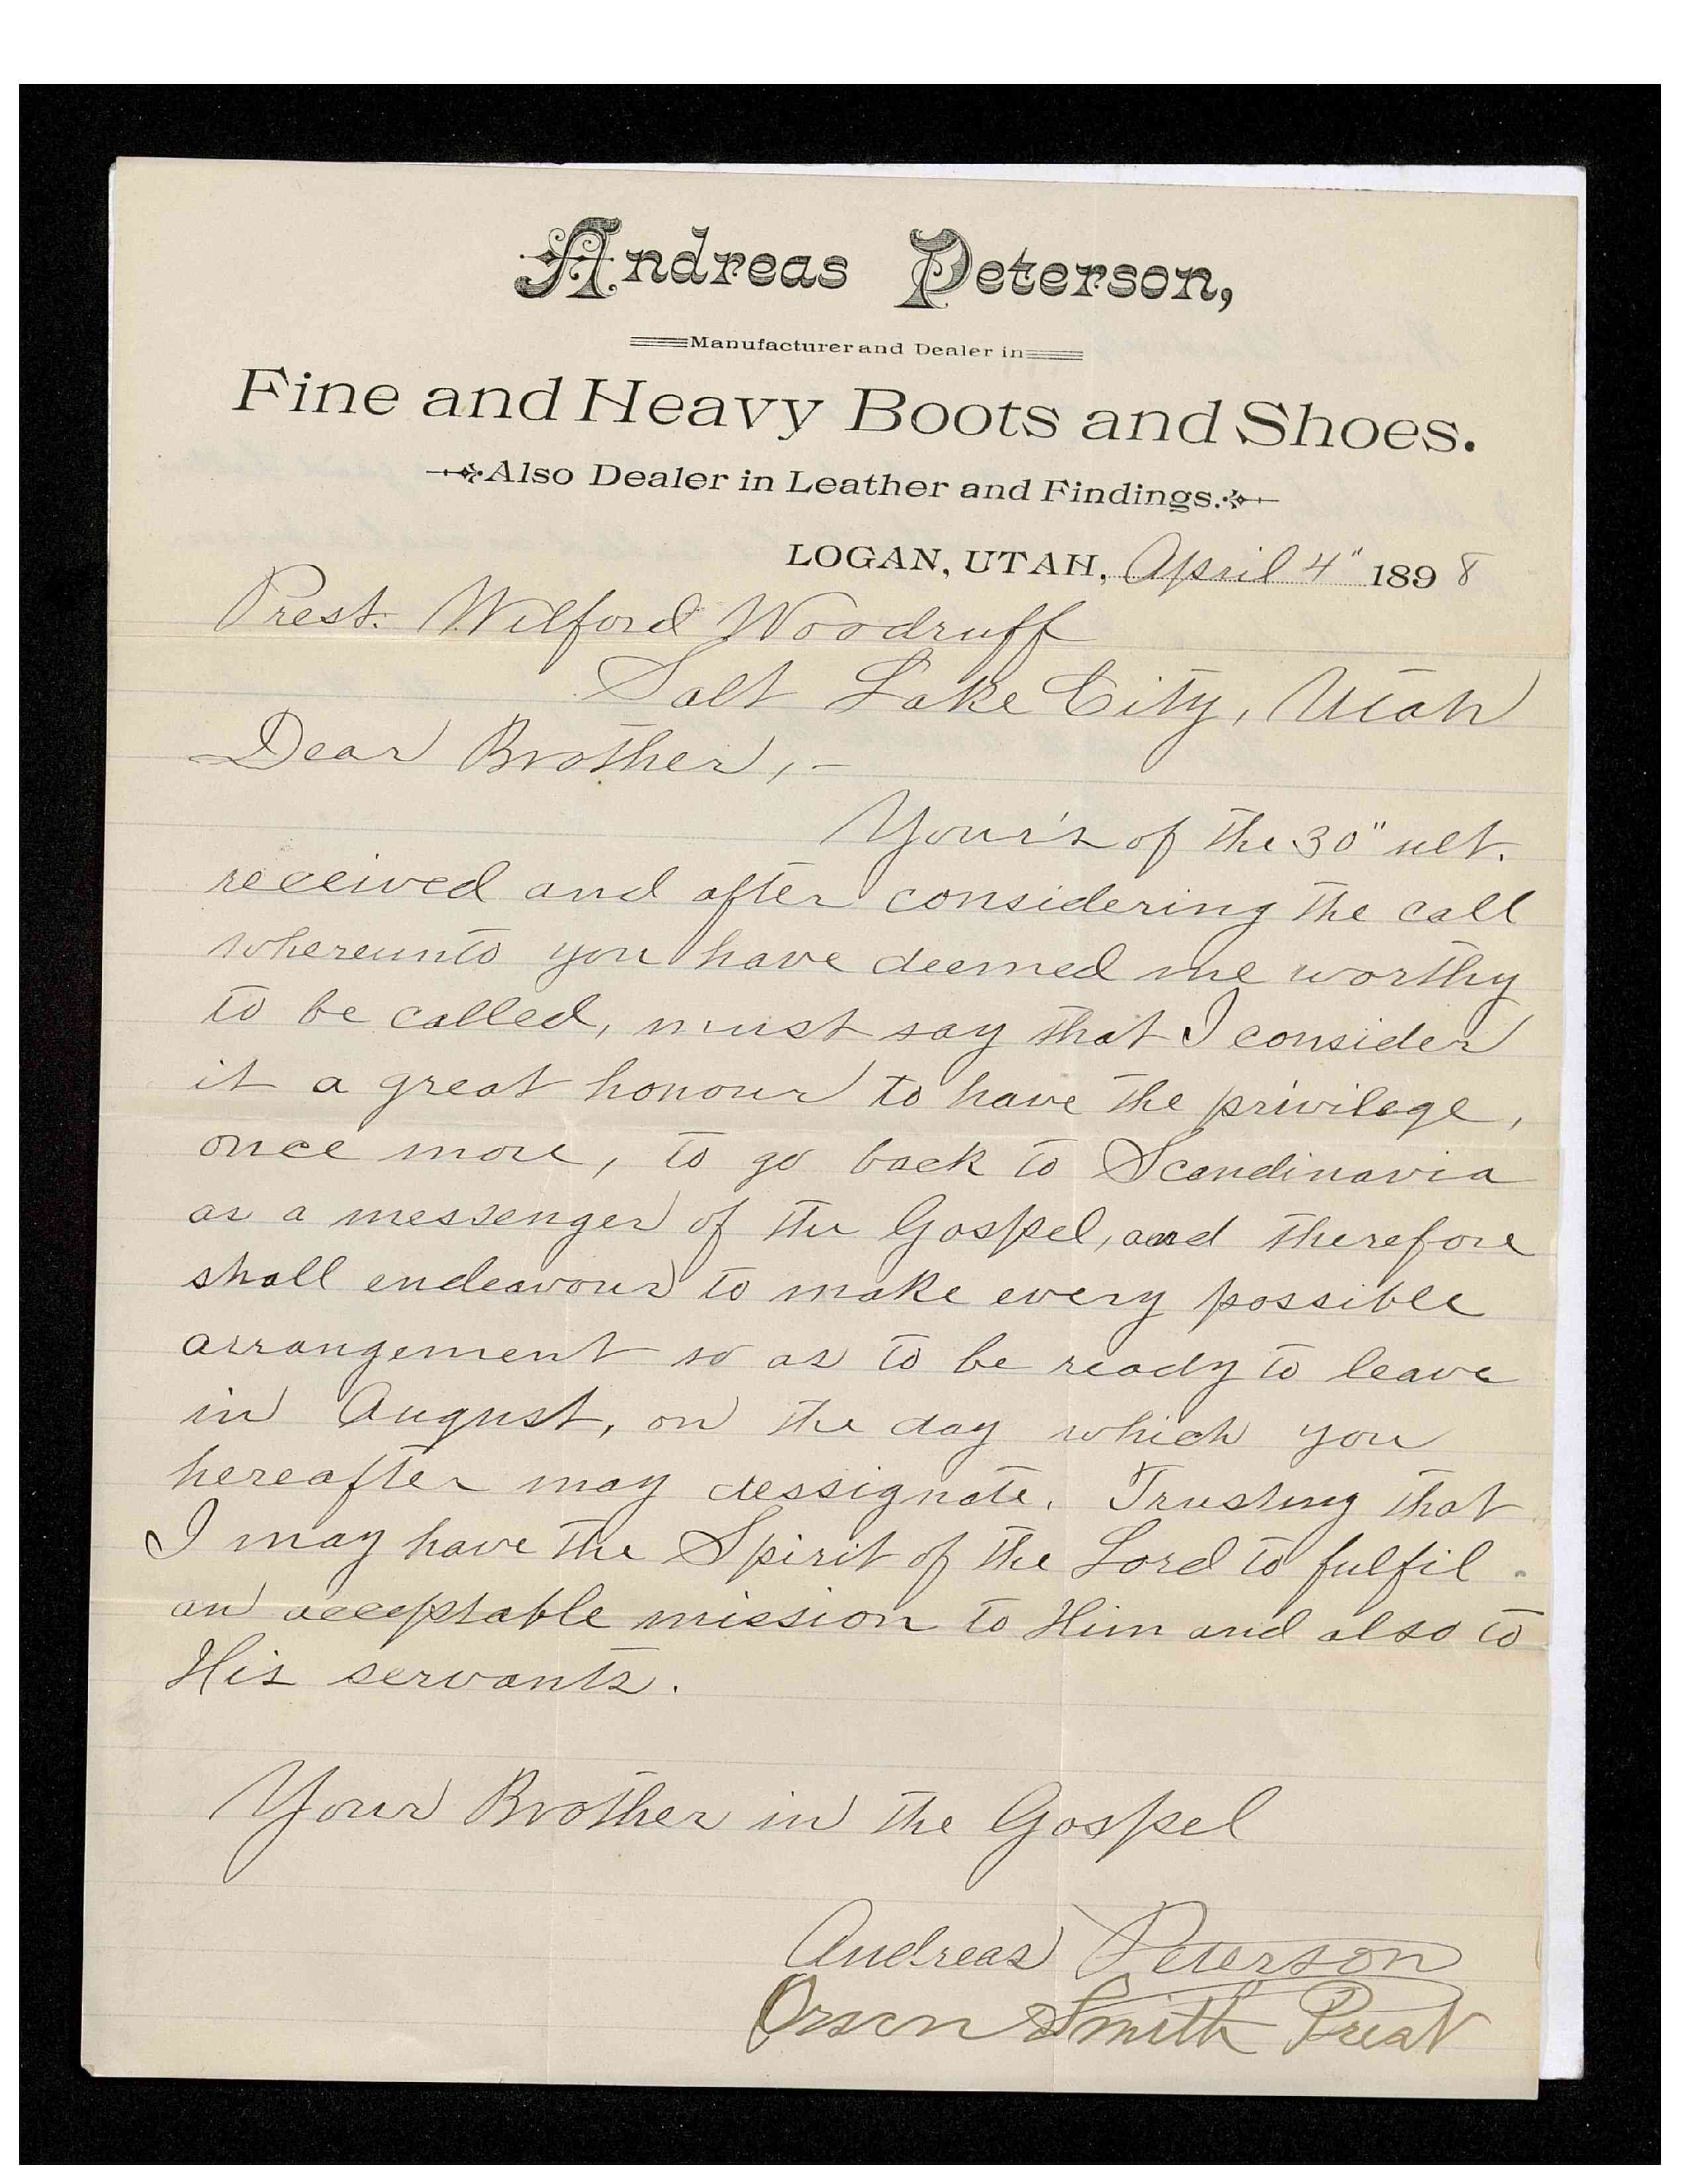 Andreas Peterson,
Manufacturer and Dealer in
Fine and Heavy Boots and Shoes.
Also Dealer in Leather and Findings.
LOGAN, UTAH, April 4" 1898
Prest. Wilford Woodruff
Salt Lake City, Utah
Dear Brother,-
Your's of the 30" ult.
received and after considering the call
whereunto you have deemed me worthy
to be called, must say that I consider
it a great honour to have the privilege,
once more, to go back to Scandinavia
as a messenger of the Gospel, and therefore
shall endeavour to make every possible
arrangement so as to be ready to leave
in August, on the day which you
hereafter may dessignate. Trusting that
I may have the Spirit of the Lord to fulfil
an acceptable mission to Him and also to
His servants.
Your Brother in the Gospel
Andreas Peterson
Orson Smith Prest